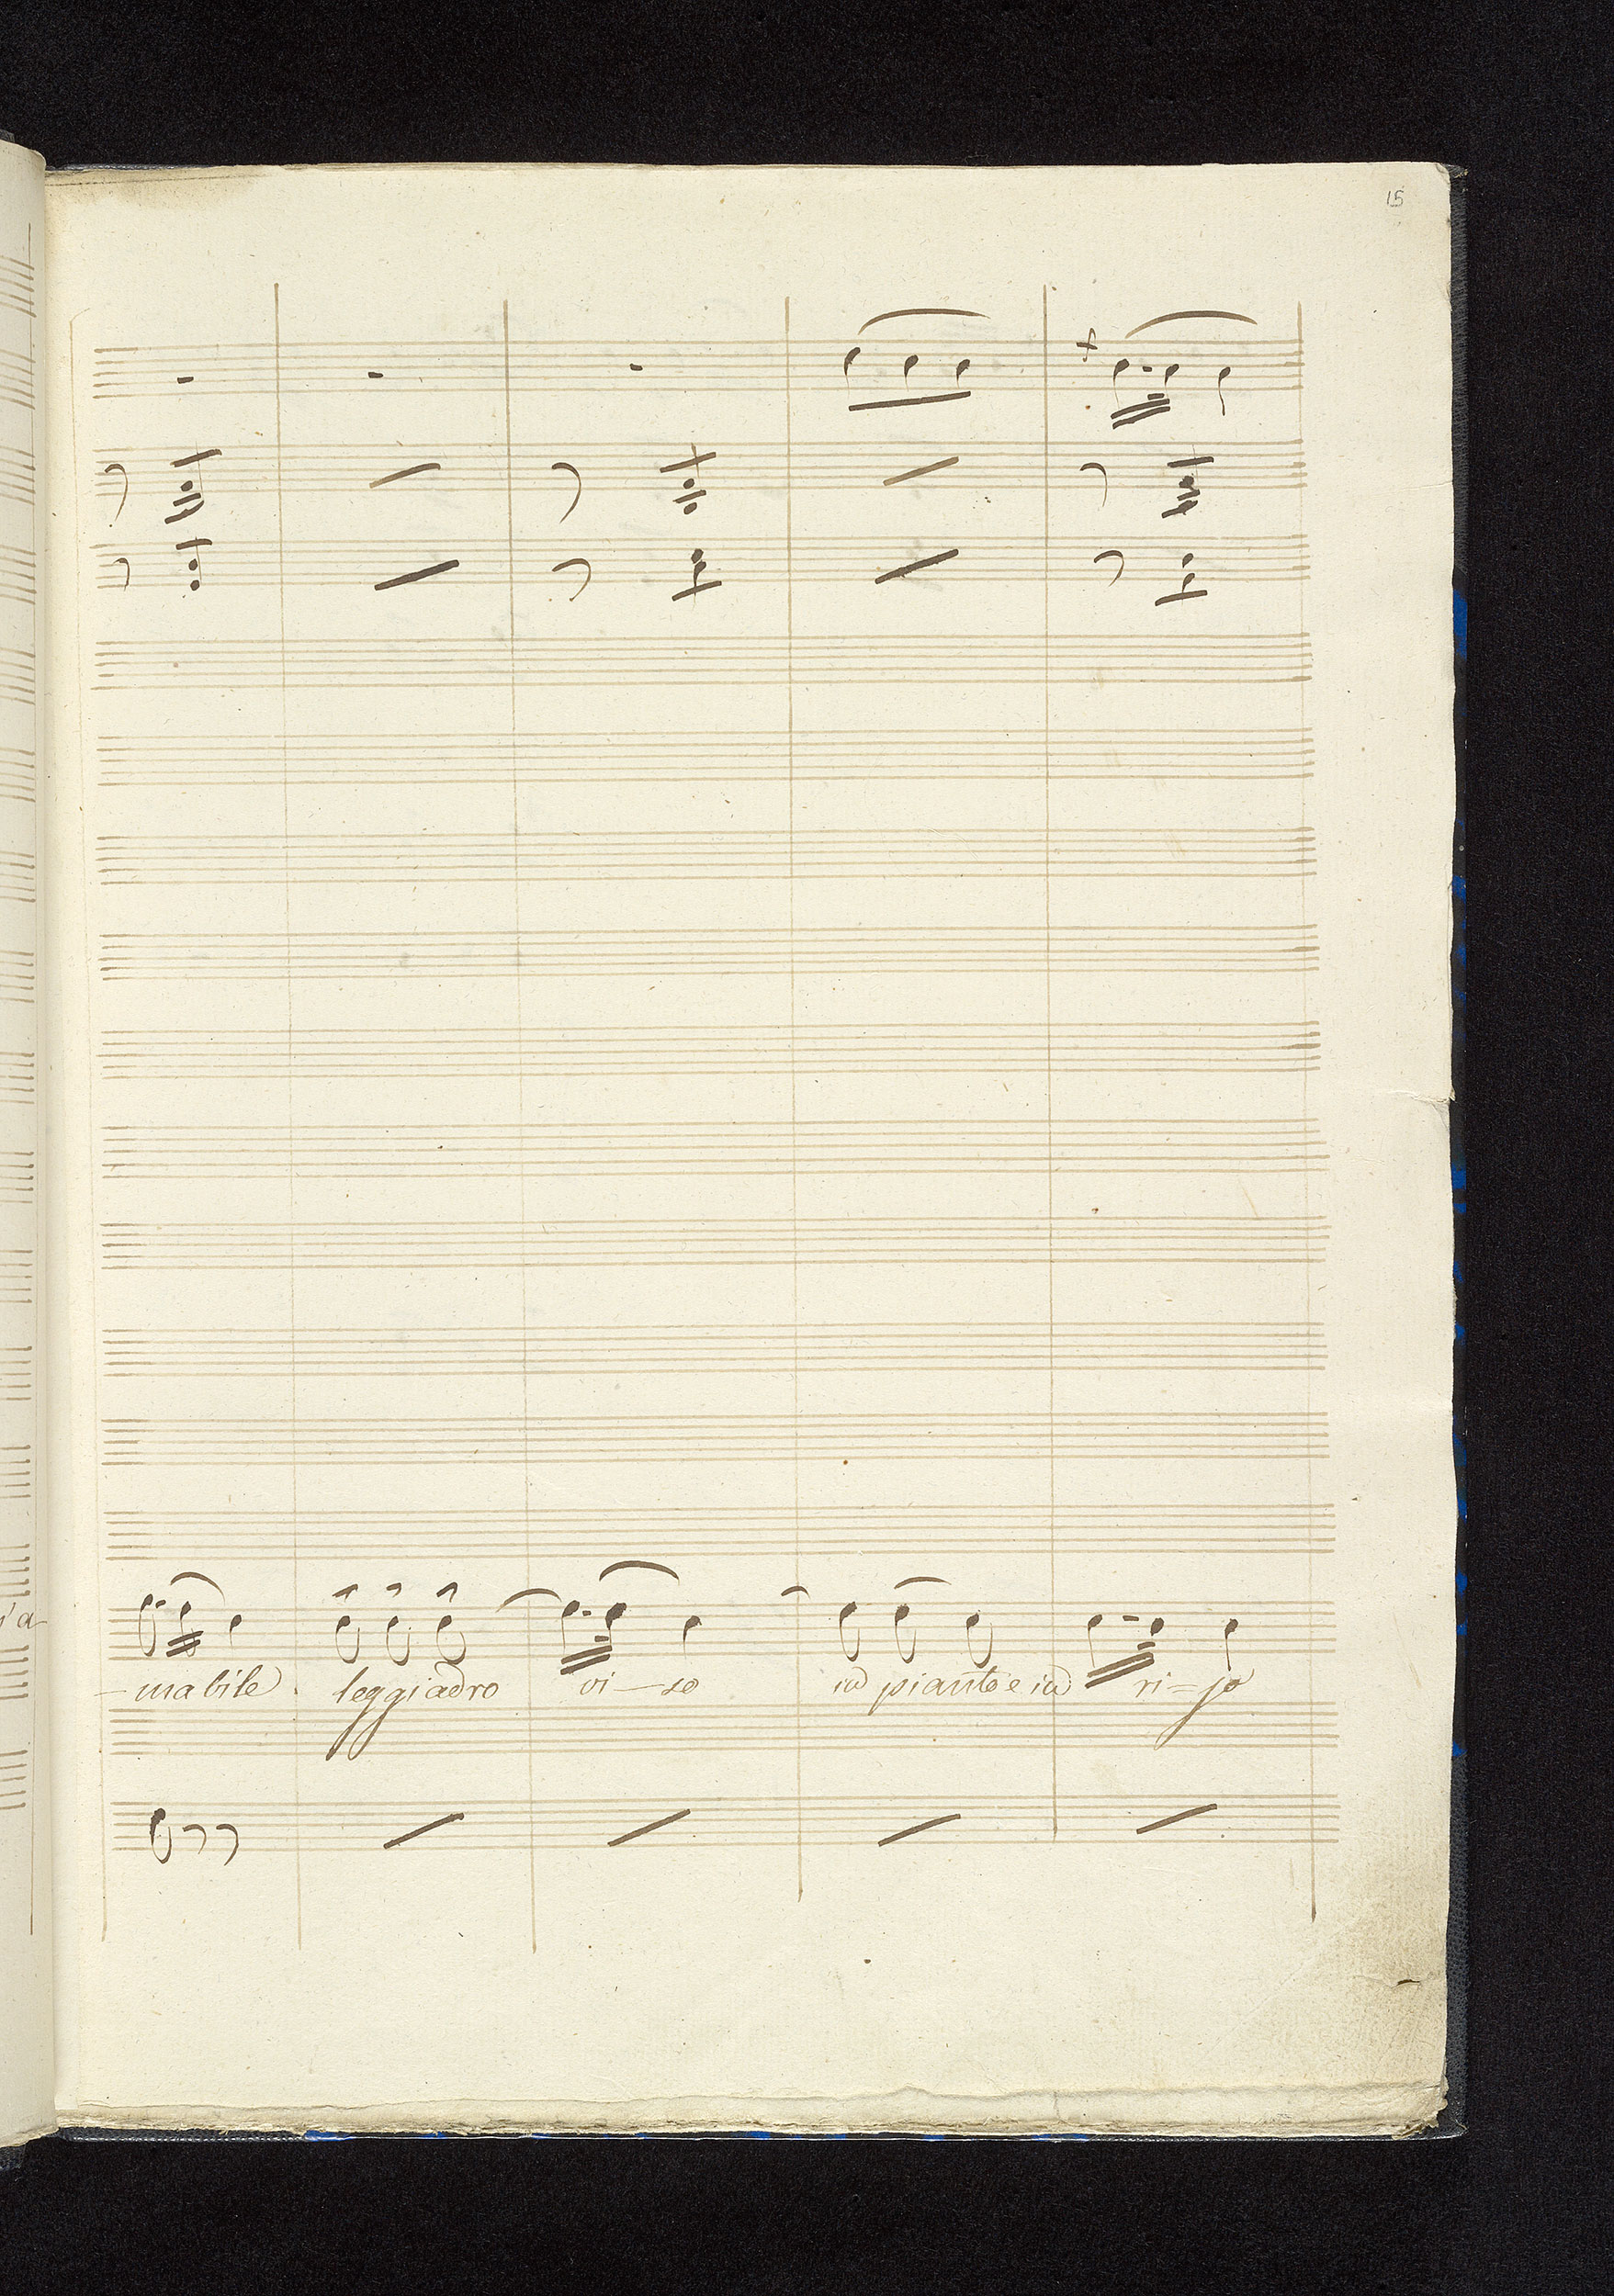 15
s'a-
- mabile leggiadro vi - so in pianto e in ri = so